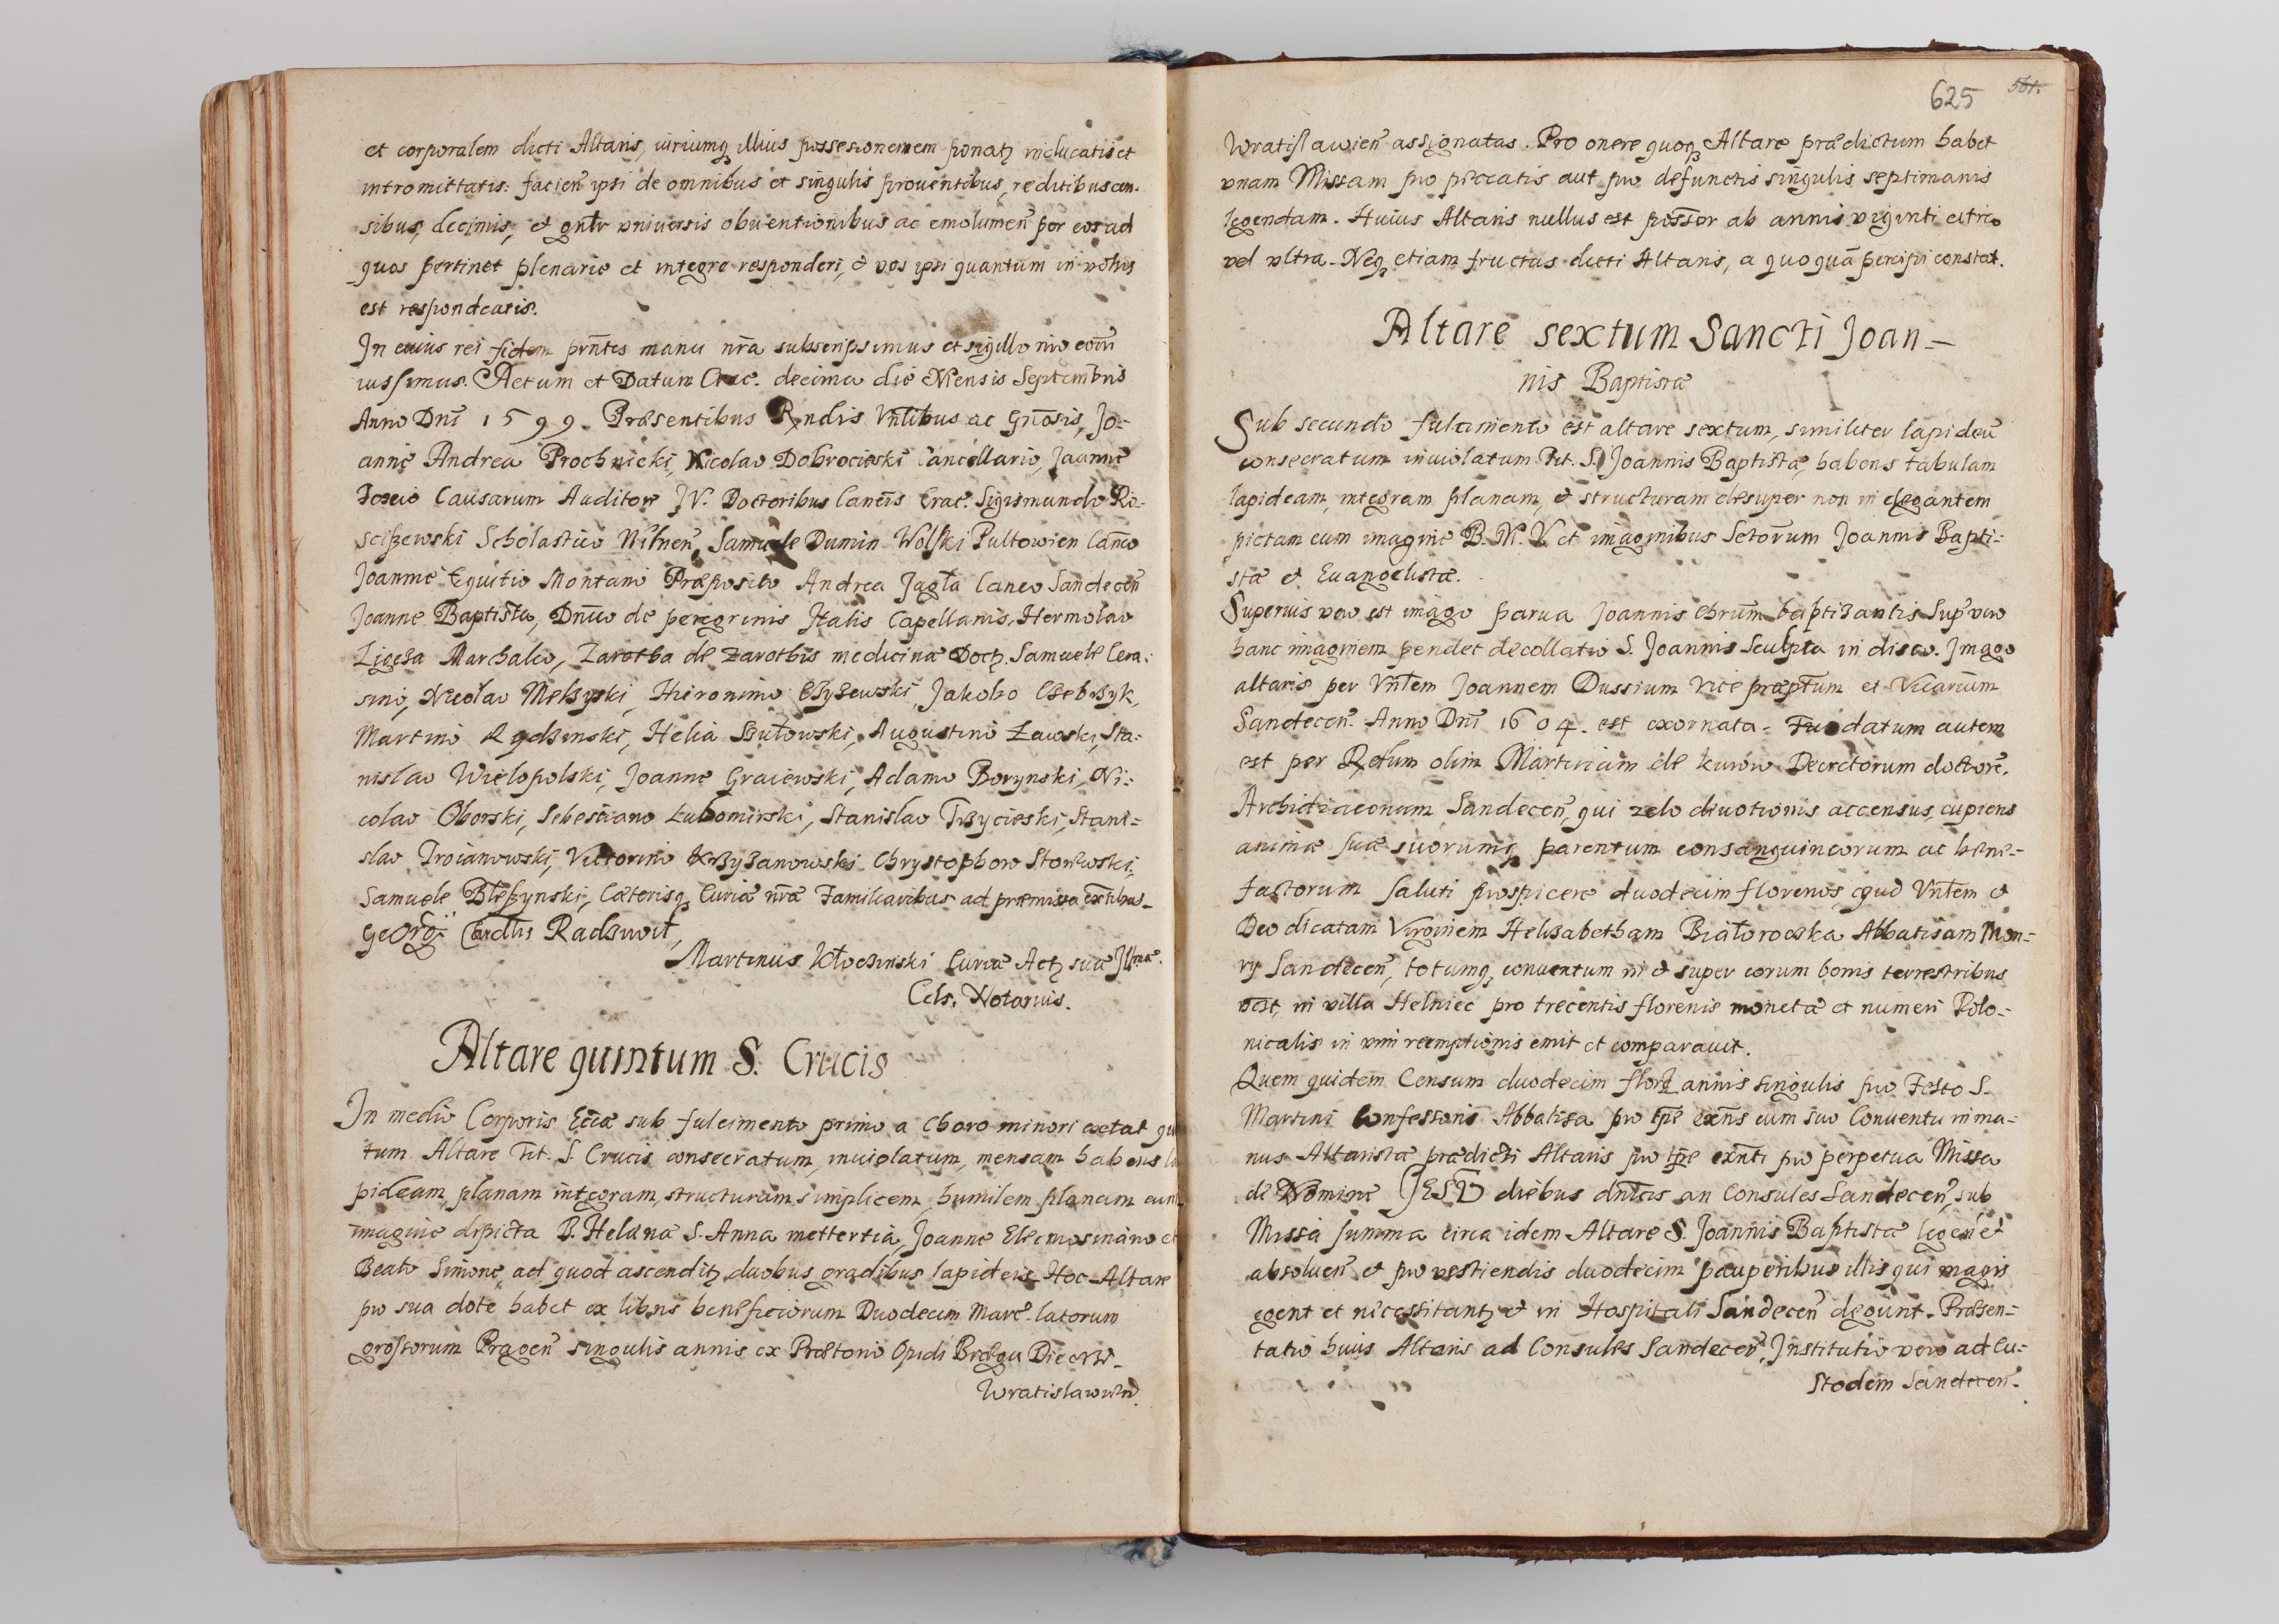 et corporalem dicti Altaris, iuriumq illius possesionemem ponatz inducatis et
intromittatis: facien̄ ipsi de omnibus et singulis prouentibus, reditibus cen-
sibus, decimis, et gnl̄r vniuersis obuentionibus ac emolumen̄ per eos ad
quos pertinet plenarie et integre responderi, et vos ipsi quantum in vobis
est respondeatis.
In cuius rei fidem pn̄tes manu nr̄a subscripsimus et sigillo nr̄o com̄
iussimus. Actum et Datum Crac. decima die Mensis Septembris
Anno Dn̄i 1599. Præsentibus Rndis Vn̄libus ac Gn̄osis, Jo-
anne Andrea Prochnicki, Nicolao Dobrocieski Cancellario, Joanne
Foxio Causarum Auditore JV. Doctoribus Can̄cis Crac. Sigismundo Ro-
sciszewski Scholastico Vilnen̄, Samuele Dunin Wolski Pultowien Can̄co
Joanne Equitio Montano Præposito Andrea Jagla Canco Sandecen̄
Joanne Baptista, Dn̄ico de peregrinis Italis Capellanis, Hermolao
Ligęza Marchalco, Zarotha de Zarothis medicinæ Doctz. Samuele Cera-
sino, Nicolao Mełzyski, Hieronimo Czyzewski, Jakobo Czebrzyk,
Martino Rydzinski, Helia Szutowski, Augustino Zawski, Sta-
nislao Wielopolski, Joanne Graiewski, Adamo Borynski, Ni-
colao Oborski, Sebestiano Lubomirski, Stanislao Trzycieski, Stani-
slao Troianowski, Victorino Krzyzanowski Chrystophoro Stoinski,
Samuele Błeszynski, Cæterisq Curiæ nr̄æ Familiaribus ad præmissa ex̄tibus
Georgi⁹ Cardlis Radziwił,
Martinus Kłoczinski Curiæ Actz suæ Jllmæ.
Cels. Notarius.
Altare quintum S. Crucis
In medio Corporis Eccæ sub fulcimento primo a Choro minori extat
tum Altare Tit. S. Crucis consecratum, inuiolatum, mensam habens
pideam, planam integram, structuram simplicem, humilem planam cum
imagine depicta B. Helenæ S. Anna mettertia, Joanne Elemosinario et
Beato Simone, ad quod ascenditz duobus gradibus lapideis Hoc Altare
pro sua dote habet ex libris beneficiorum Duodecim Marc. latorum
grossorum Pragen̄ singulis annis ex Prætorio Opidi Brzegu Diecæs
Wratislawien̄
625 561.
Wratislawien̄ assignatas. Pro onere quoq Altare prædictum habet
vnam Missam pro peccatis aut pro defunctis singulis septimanis
legendam. Huius Altaris nullus est poss̄or ab annis viginti citra
vel vltra. Neq etiam fructus dicti Altaris, a quoquā percipi constat.
Altare sextum Sancti Joan-
nis Baptistæ
Sub secundo fulcimento est altare sextum, similiter lapideū
consecratum inuiolatum Tit. S. Joannis Baptistæ, habens tabulam
lapideam, integram planam, et structuram desuper non in elegantem
pictam cum imagine B. M. V. et imaginibus Sctorum Joannis Bapti-
stæ et Euangelistæ.
Superius vero est imago parua Joannis Chrūm baptizantis Sup̄ vero
hanc imaginem pendet decollatio S. Joannis Sculpta in disco. Imago
altaris per Vn̄lem Joannem Dussium Vice præptum et Vicarium
Sandecen̄. Anno Dn̄i 1604. est exornata. Fundatum autem
est per Rdum olim Martinum de Kurow Decretorum doctorē,
Archidiaconum Sandecen̄, qui zelo deuotionis accensus, cupiens
animæ suæ suorumq parentum consanguineorum ac bene-
factorum saluti prospicere duodecim florenos, apud Vn̄lem et
Deo dicatam Virginem Helizabetham Białorocka Abbatisam Mon-
ry Sandecen̄, totumq conuentum in et super eorum bonis terrestribus
vc̄z, in villa Helniec pro trecentis florenis monetæ et numeri Polo-
nicalis in vim reemptionis emit et comparauit.
Quem quidem Censum duodecim florz annis singulis pro Festo S.
Martini Confessoris Abbatisa pro tp̄e exn̄s cum suo Conuentu in ma-
nus Altaristæ prædicti Altaris pro tp̄e exn̄ti pro perpetua Missa
de Nomine JESV diebus dn̄icis an Consules Sandecen̄, sub
Missa summa circa idem Altare S. Joannis Baptistæ legen̄ et
absoluen̄ et pro vestiendis duodecim pauperibus illis qui magis
egent et necessitantz et in Hospitali Sandecen̄ degunt. Præsen-
tatio huius Altaris ad Consules Sandecen̄, Institutio vero ad Cu-
stodem Sandecen̄.